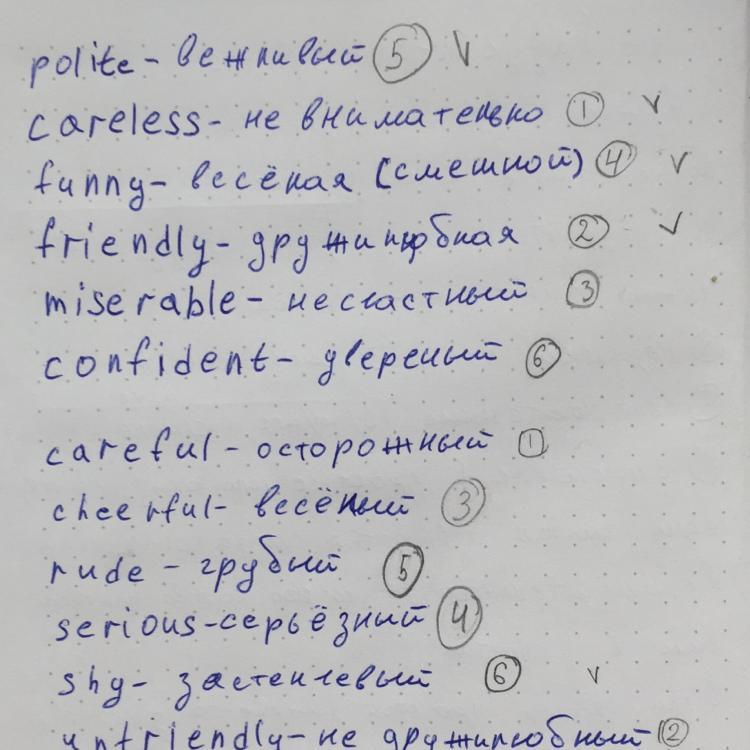 polite - вежливый 5 V
careless - не внимательно 1 v
funny - весёлая (смешной) 4 v
friendly - дружилюбная 2 v
miserable - несчастный 3
confident - увереный 6
careful - осторожный 1
cheerful - весёлый 3
rude - грубый 5
serious - серьёзный 4
shy - застенчевый 6 v
unfriendly - не дружилюбный 2